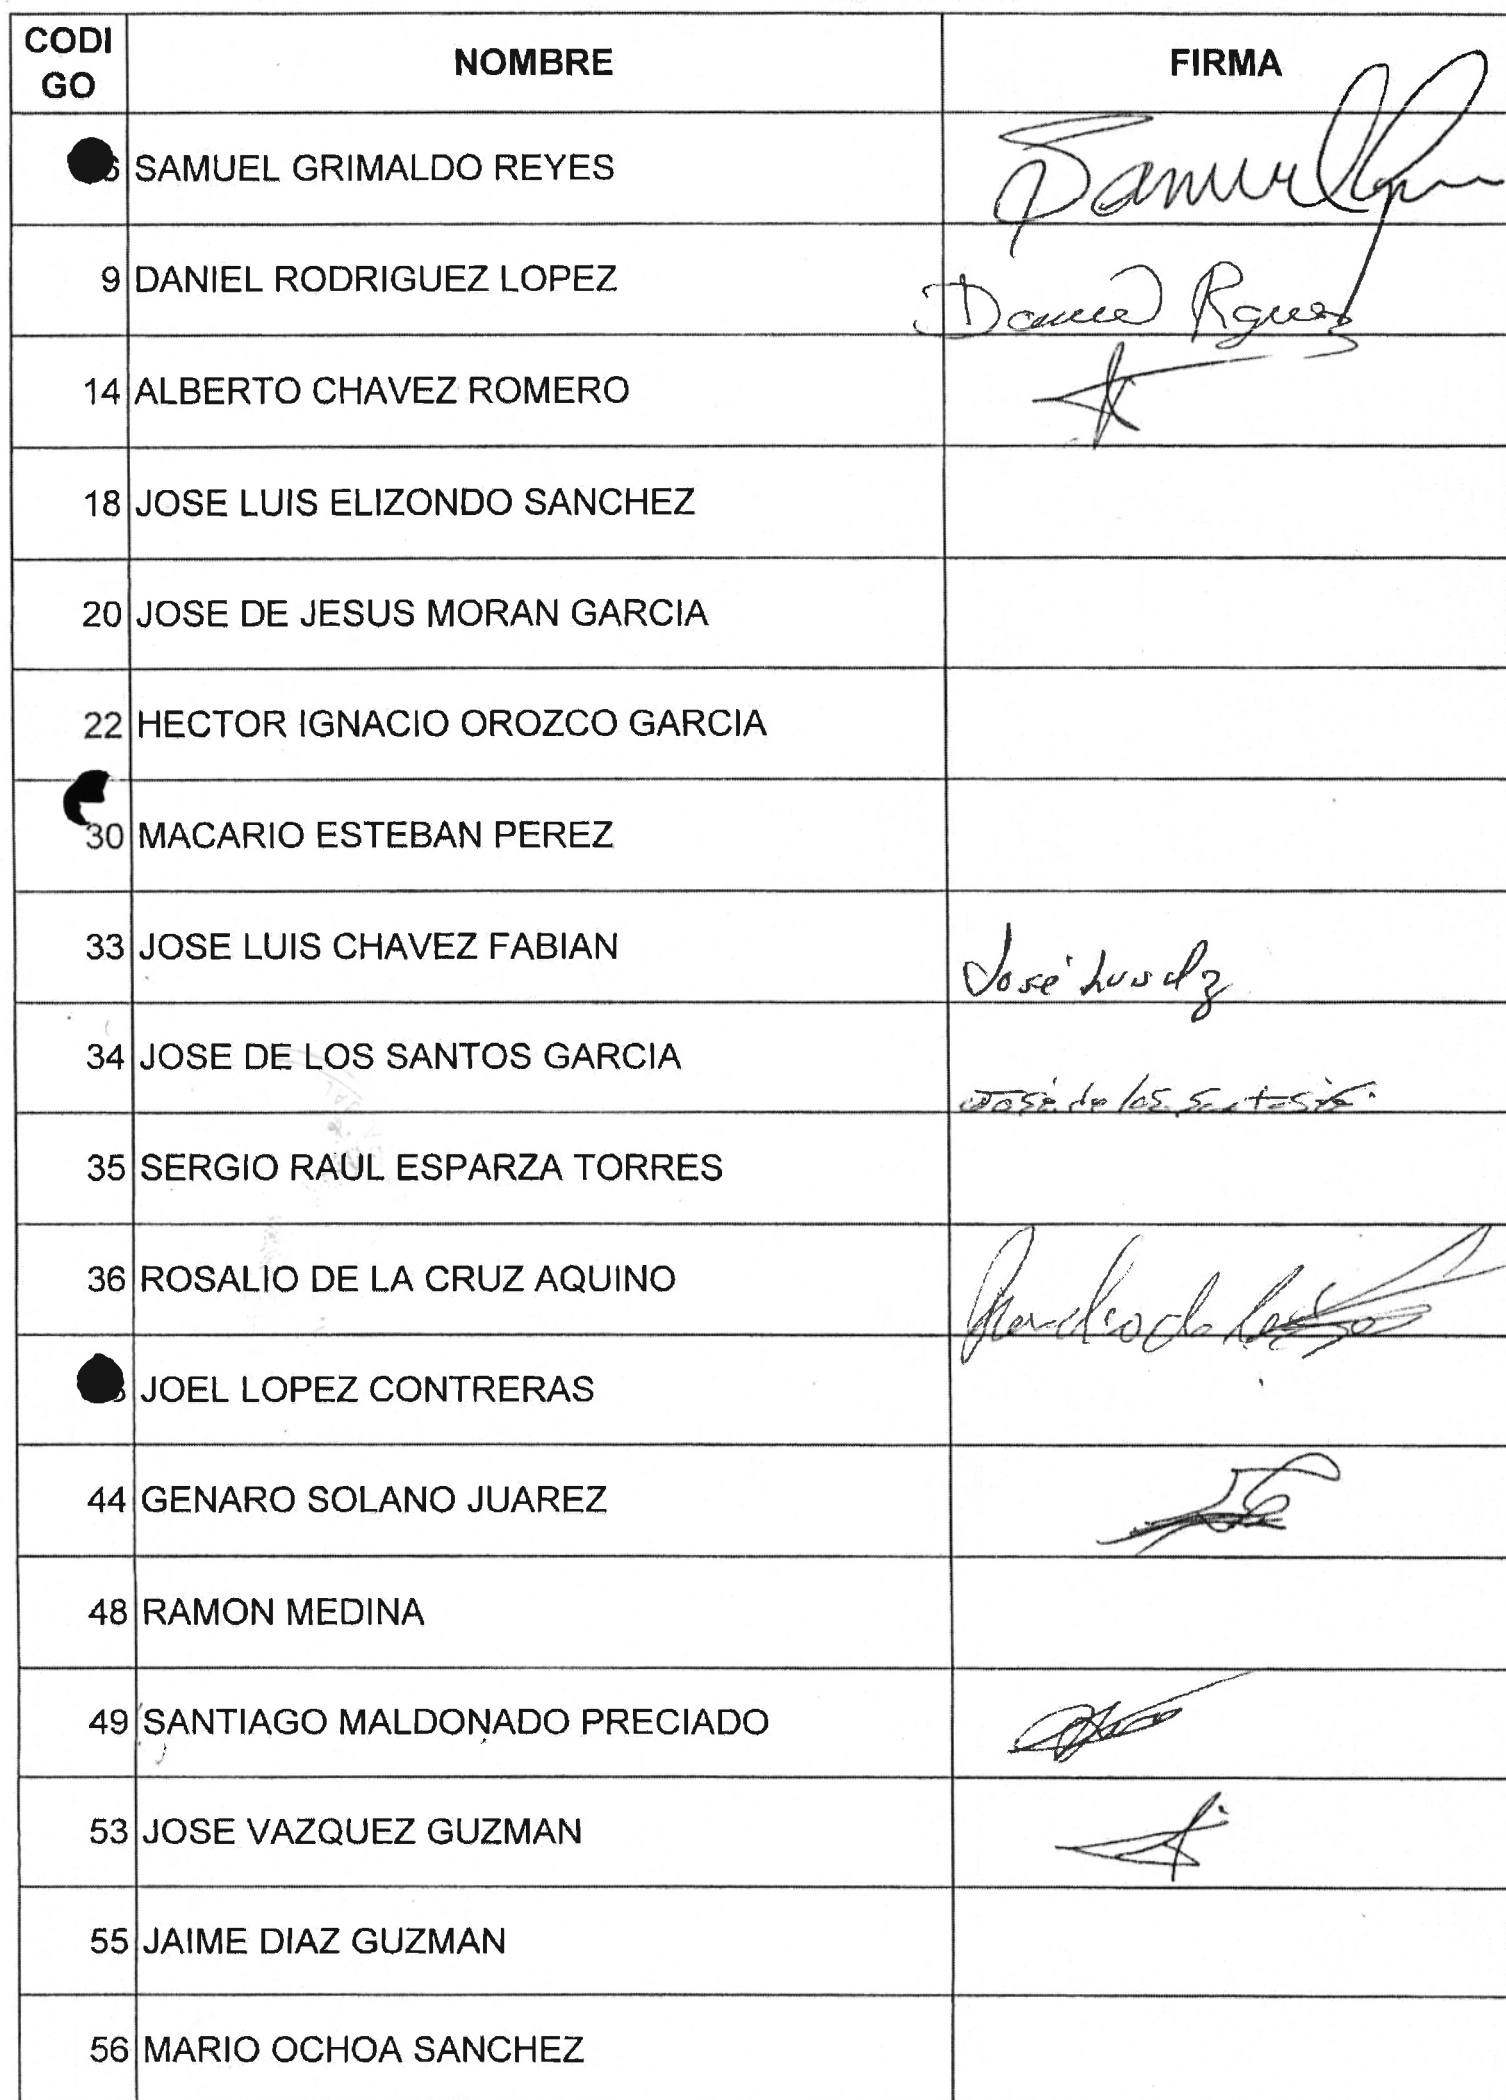 CODI
GO
NOMBRE
FIRMA
SAMUEL GRIMALDO REYES
Samuel
9 DANIEL RODRIGUEZ LOPEZ
Daniel Rguez
14 ALBERTO CHAVEZ ROMERO
18 JOSE LUIS ELIZONDO SANCHEZ
20 JOSE DE JESUS MORAN GARCIA
22 HECTOR IGNACIO OROZCO GARCIA
30 MACARIO ESTEBAN PEREZ
33 JOSE LUIS CHAVEZ FABIAN
José Luis
34 JOSE DE LOS SANTOS GARCIA
José de los Santos
35 SERGIO RAUL ESPARZA TORRES
36 ROSALIO DE LA CRUZ AQUINO
JOEL LOPEZ CONTRERAS
44 GENARO SOLANO JUAREZ
48 RAMON MEDINA
49 SANTIAGO MALDONADO PRECIADO
53 JOSE VAZQUEZ GUZMAN
55 JAIME DIAZ GUZMAN
56 MARIO OCHOA SANCHEZ